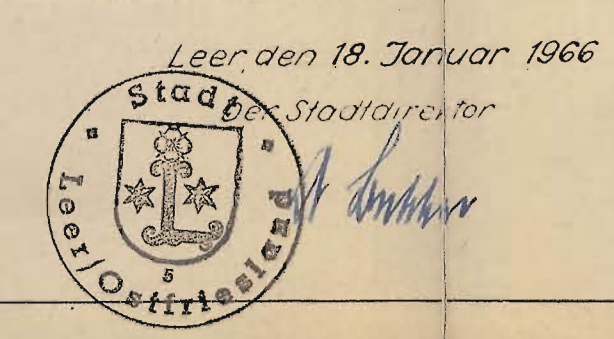 Leer, den 18. Januar 1966
Der Stadtdirektor
Stadt
L
5
Leer/Ostfriesland